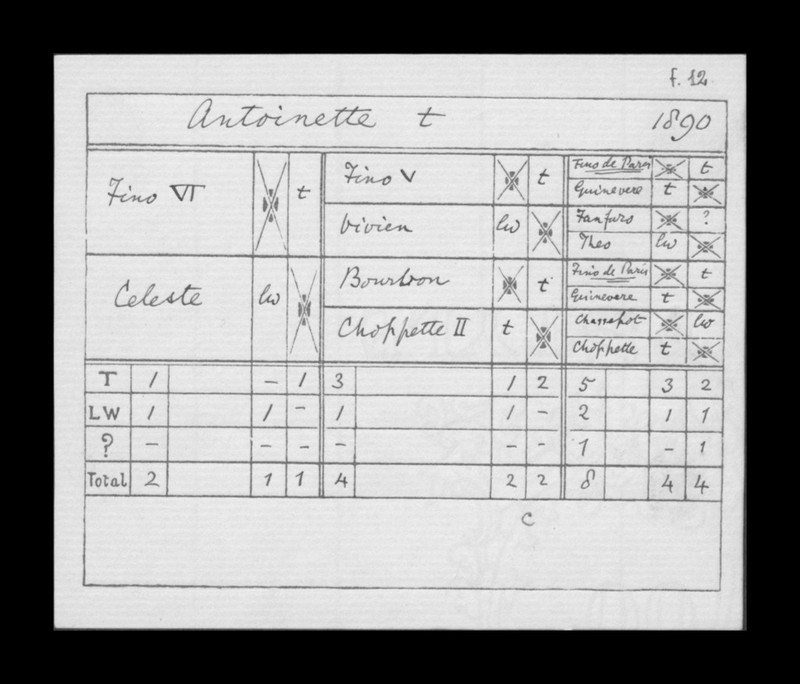 F. 12
Antoinette t 1890
Fino VI t
Fino V t
Vivien lw
Fino de Paris t
Guinevere t
Fanfaro ?
Theo lw
Celeste lw
Bourbon t
Choppette II t
Fino de Paris t
Guinevere t
Chassepot lw
Choppette t
T 1 – 1 3 1 2 5 3 2
LW 1 1 – 1 1 – 2 1 1
? – – – – – – 1 – 1
Total 2 1 1 4 2 2 8 4 4
C